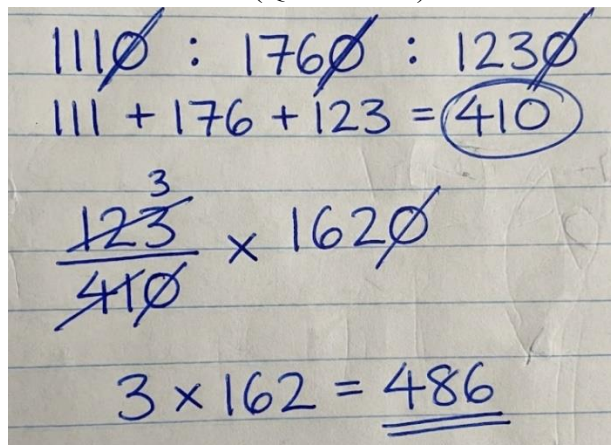 1110 : 1760 : 1230
111 + 176 + 123 = 410
3
123
410
× 1620
3 × 162 = 486